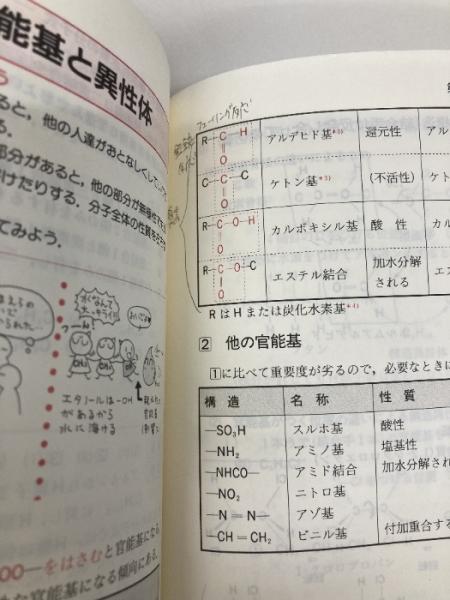 能基と異性体
ると，他の人達がおとなしくして
る．
部分があると，他の部分が無極性で
けたりする．分子全体の性質を
てみよう．
水なんて
大っキライ!!
エタノールは—OH
があるから
水に溶ける
COO—をはさむと官能基になら
な官能基になる傾向にある．
フェーリング反応
R—C—H
‖
O
アルデヒド基*3)
還元性
アル
C—C—C
‖
O
ケトン基*3)
(不活性)
ケト
R—C—O—H
‖
O
カルボキシル基
酸 性
カル
R—C—O—C
‖
O
エステル結合
加水分解
される
エス
R は H または炭化水素基*4)
2 他の官能基
1に比べて重要度が劣るので，必要なときに
構 造 名 称 性 質
—SO₃H スルホ基 酸性
—NH₂ アミノ基 塩基性
—NHCO— アミド結合 加水分解され
—NO₂ ニトロ基
—N＝N— アゾ基
—CH＝CH₂ ビニル基 付加重合する